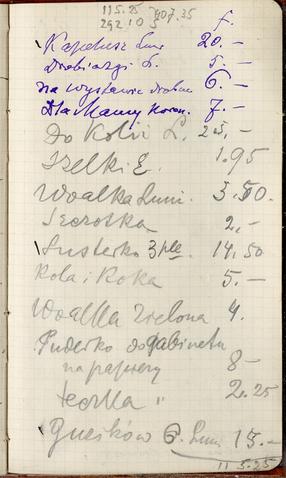 115.25 407.35
292 10
f.
Kapelusz Luni 20.-
Drobiazgi L. 5.-
na wystawie drobn 6.-
Dla Mamy koron. 7.-
Do Kolii L. 25.-
Szelki E. 1.95
Woalka Luni. 3.50.
Szczotka 2.-
Lusterko 3 14,50
Kola i Koka 5.-
Woalka Zielona 4.
Pudełko do gabinetu
na papiery 8-
teczka " 2.25
Guzików 6. Luni 15.-
115.25